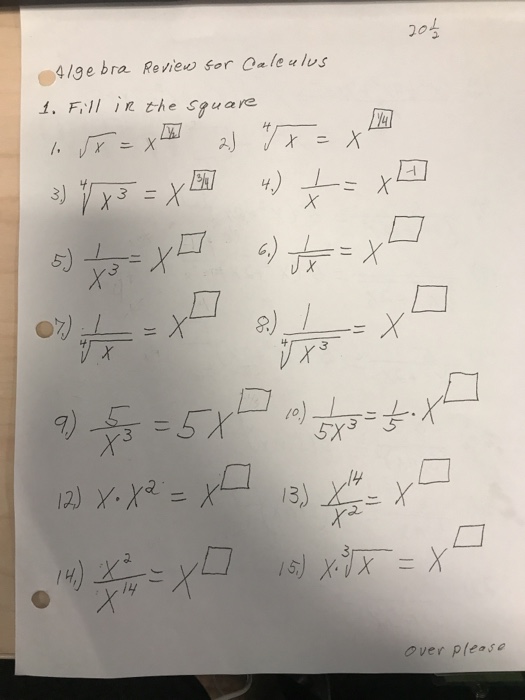 20 1/2
Algebra Review for Calculus
1. Fill in the square
1. √x = x^[1/2] 2.) ⁴√x = x^[1/4]
3.) ⁴√x³ = x^[3/4] 4.) 1/x = x^[-1]
5.) 1/x³ = x^□ 6.) 1/√x = x^□
7.) 1/⁴√x = x^□ 8.) 1/⁴√x³ = x^□
9.) 5/x³ = 5x^□ 10.) 1/5x³ = 1/5 · x^□
12.) x·x² = x^□ 13.) x¹⁴/x² = x^□
14.) x²/x¹⁴ = x^□ 15.) x·³√x = x^□
over please